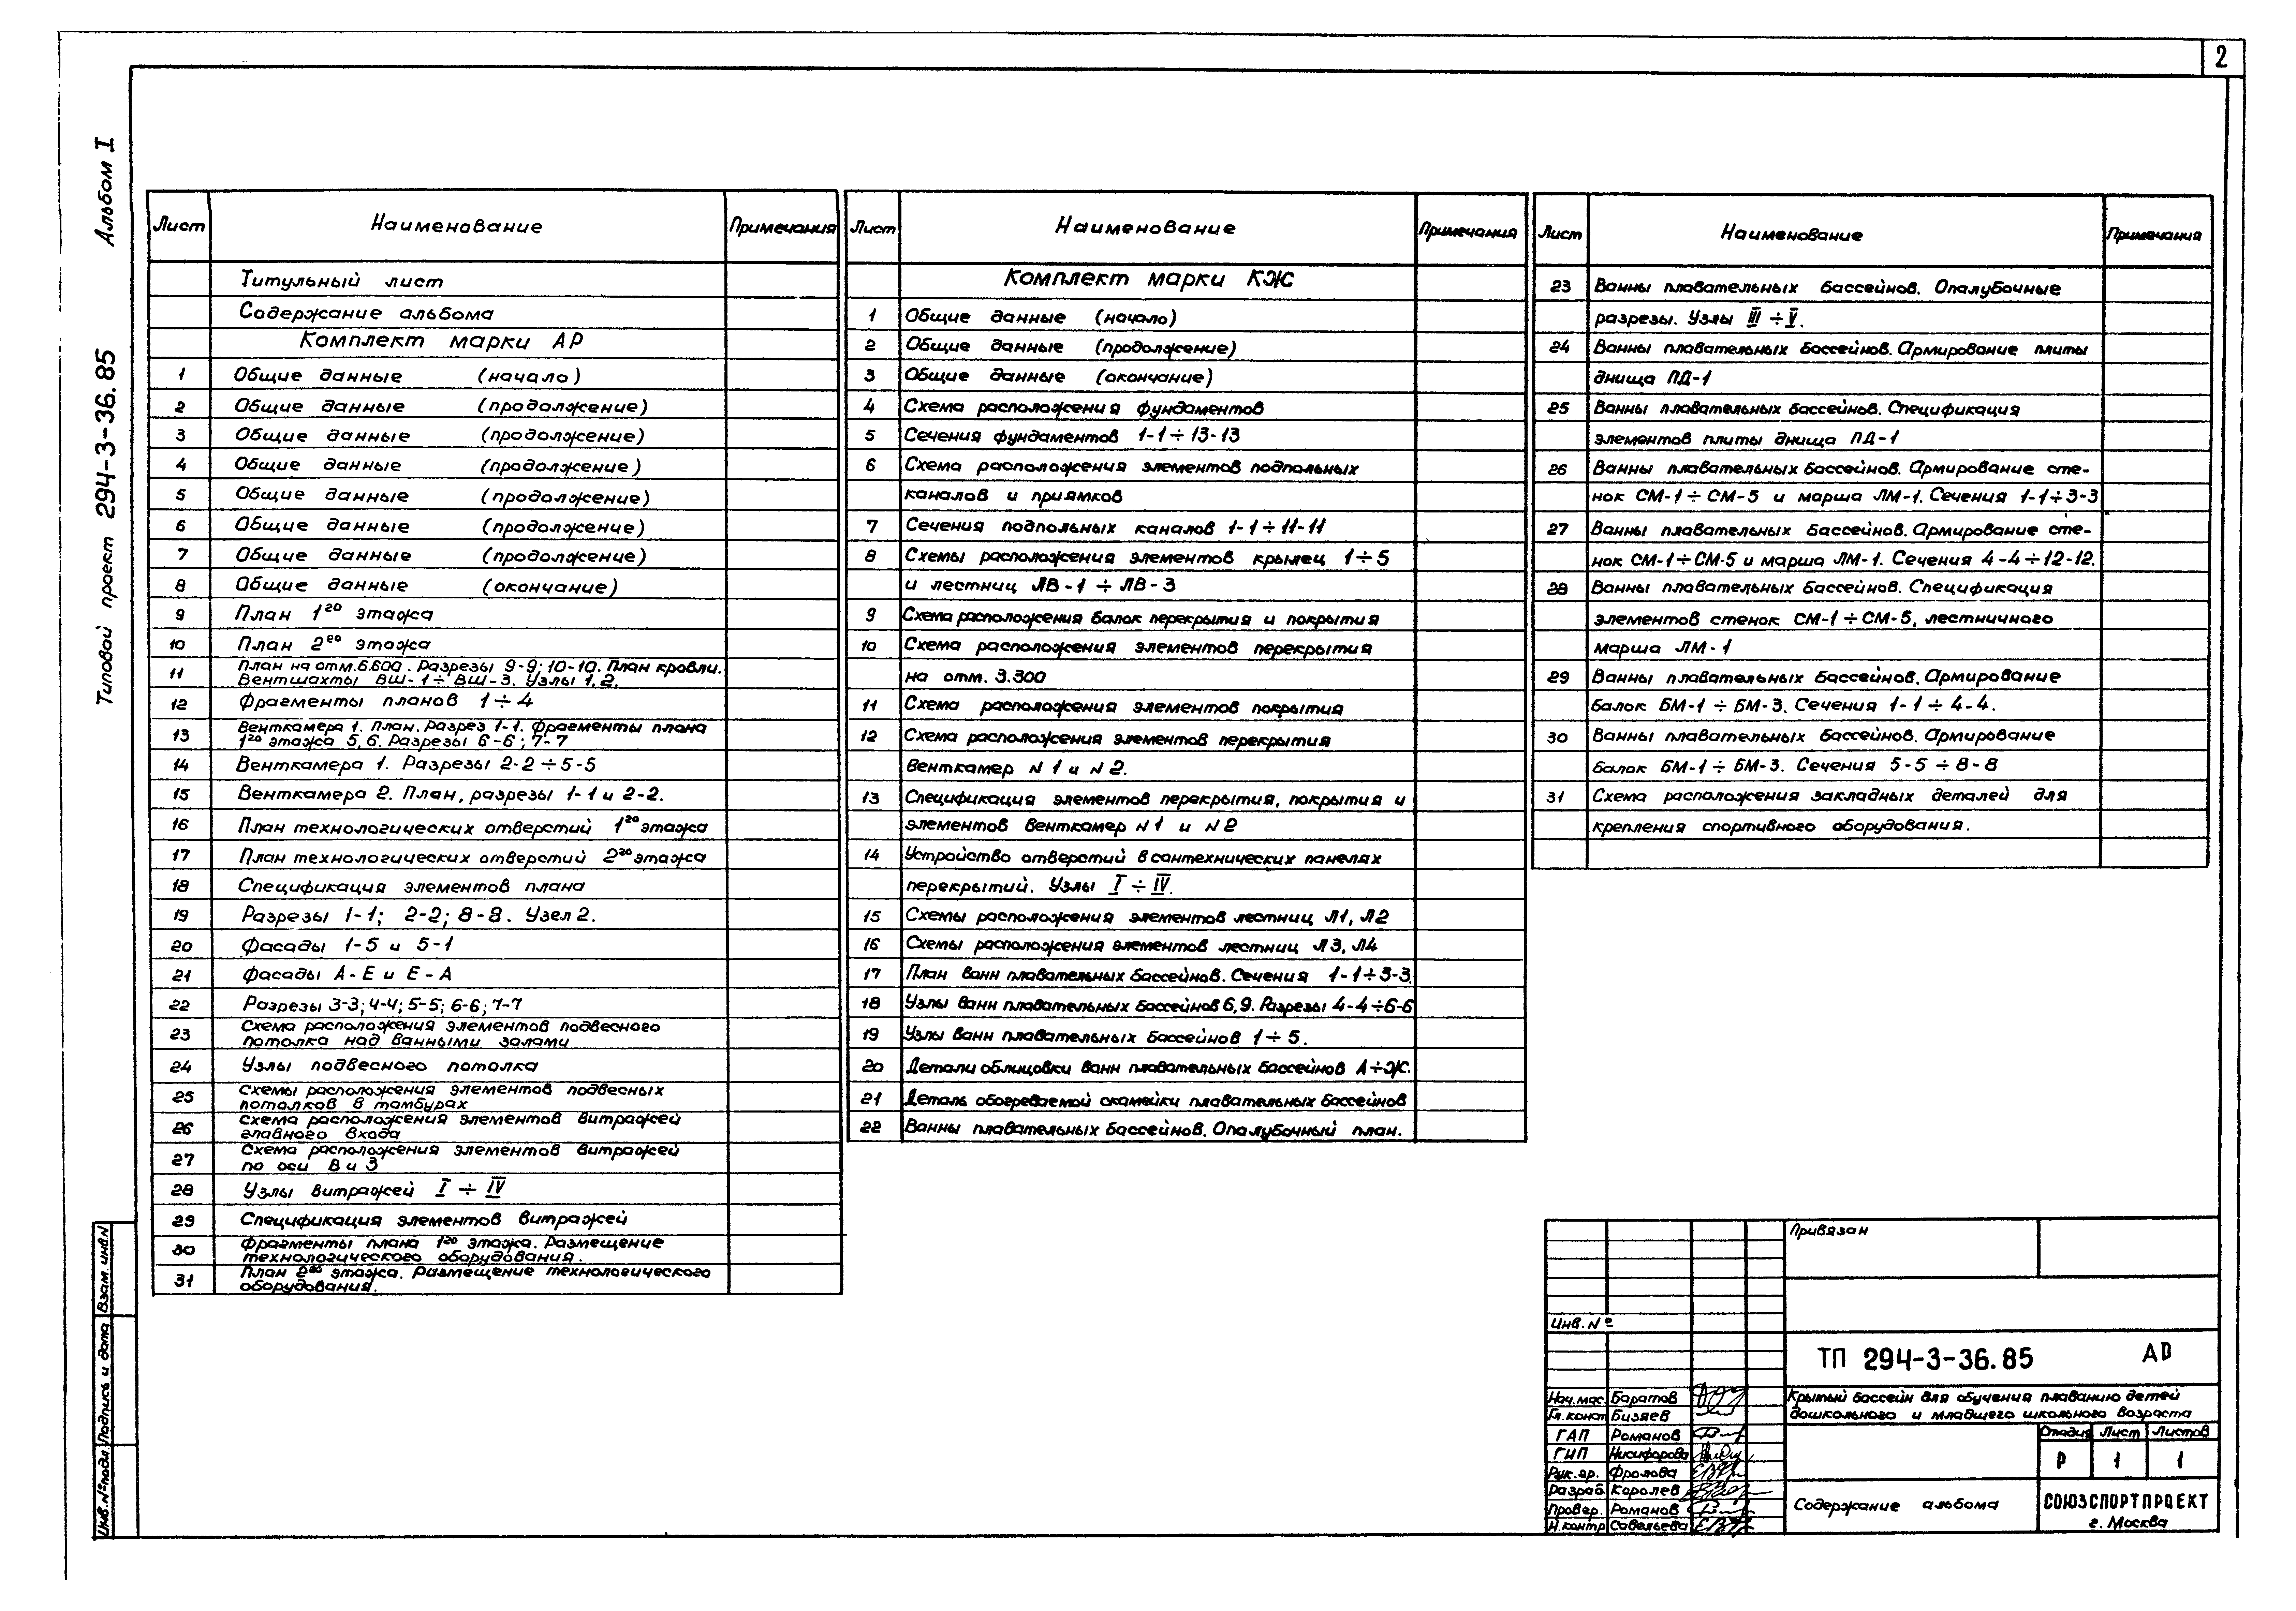 2
Альбом I
Типовой проект 294-3-36.85
Лист Наименование Примечания
Титульный лист
Содержание альбома
Комплект марки АР
1 Общие данные (начало)
2 Общие данные (продолжение)
3 Общие данные (продолжение)
4 Общие данные (продолжение)
5 Общие данные (продолжение)
6 Общие данные (продолжение)
7 Общие данные (продолжение)
8 Общие данные (окончание)
9 План 1го этажа
10 План 2го этажа
11 План на отм.6.600. Разрезы 9-9; 10-10. План кровли.
Вентшахты ВШ-1÷ВШ-3. Узлы 1,2.
12 Фрагменты планов 1÷4
13 Венткамера 1. План. Разрез 1-1. Фрагменты плана
1го этажа 5,6. Разрезы 6-6; 7-7
14 Венткамера 1. Разрезы 2-2÷5-5
15 Венткамера 2. План, разрезы 1-1 и 2-2.
16 План технологических отверстий 1го этажа
17 План технологических отверстий 2го этажа
18 Спецификация элементов плана
19 Разрезы 1-1; 2-2; 8-8. Узел 2.
20 Фасады 1-5 и 5-1
21 Фасады А-Е и Е-А
22 Разрезы 3-3; 4-4; 5-5; 6-6; 7-7
23 Схема расположения элементов подвесного
потолка над ванными залами
24 Узлы подвесного потолка
25 Схемы расположения элементов подвесных
потолков в тамбурах
26 Схема расположения элементов витражей
главного входа
27 Схема расположения элементов витражей
по оси В и 3
28 Узлы витражей I÷IV
29 Спецификация элементов витражей
30 Фрагменты плана 1го этажа. Размещение
технологического оборудования.
31 План 2го этажа. Размещение технологического
оборудования.
Лист Наименование Примечания
Комплект марки КЖ
1 Общие данные (начало)
2 Общие данные (продолжение)
3 Общие данные (окончание)
4 Схема расположения фундаментов
5 Сечения фундаментов 1-1÷13-13
6 Схема расположения элементов подпольных
каналов и приямков
7 Сечения подпольных каналов 1-1÷11-11
8 Схемы расположения элементов крылец 1÷5
и лестниц ЛВ-1÷ЛВ-3
9 Схема расположения балок перекрытия и покрытия
10 Схема расположения элементов перекрытия
на отм. 3.300
11 Схема расположения элементов покрытия
12 Схема расположения элементов перекрытия
Венткамер N 1 и N 2.
13 Спецификация элементов перекрытия, покрытия и
элементов Венткамер N1 и N2
14 Устройство отверстий в сантехнических панелях
перекрытий. Узлы I÷IV.
15 Схемы расположения элементов лестниц Л1, Л2
16 Схемы расположения элементов лестниц Л3, Л4
17 План ванн плавательных бассейнов. Сечения 1-1÷3-3.
18 Узлы ванн плавательных бассейнов 6,9. Разрезы 4-4÷6-6
19 Узлы ванн плавательных бассейнов 1÷5.
20 Детали облицовки ванн плавательных бассейнов А÷Ж.
21 Деталь обогреваемой скамейки плавательных бассейнов
22 Ванны плавательных бассейнов. Опалубочный план.
Лист Наименование Примечания
23 Ванны плавательных бассейнов. Опалубочные
разрезы. Узлы III÷V.
24 Ванны плавательных бассейнов. Армирование плиты
днища ПД-1
25 Ванны плавательных бассейнов. Спецификация
элементов плиты днища ПД-1
26 Ванны плавательных бассейнов. Армирование сте-
нок СМ-1÷СМ-5 и марша ЛМ-1. Сечения 1-1÷3-3
27 Ванны плавательных бассейнов. Армирование сте-
нок СМ-1÷СМ-5 и марша ЛМ-1. Сечения 4-4÷12-12.
28 Ванны плавательных бассейнов. Спецификация
элементов стенок СМ-1÷СМ-5, лестничного
марша ЛМ-1
29 Ванны плавательных бассейнов. Армирование
балок БМ-1÷БМ-3. Сечения 1-1÷4-4.
30 Ванны плавательных бассейнов. Армирование
балок БМ-1÷БМ-3. Сечения 5-5÷8-8
31 Схема расположения закладных деталей для
крепления спортивного оборудования.
Привязан
Инв. №
ТП 294-3-36.85 АР
Нач.мас. Баратов
Гл.конст Бизяев
ГАП Романов
ГИП Никифорова
Рук.гр. Фролова
Разраб. Королев
Провер. Романов
Н.контр Савельева
Крытый бассейн для обучения плаванию детей
дошкольного и младшего школьного возраста
Стадия Лист Листов
Р 1 1
Содержание альбома
СОЮЗСПОРТПРОЕКТ
г. Москва
Инв.№подл. Подпись и дата Взам.инв.N